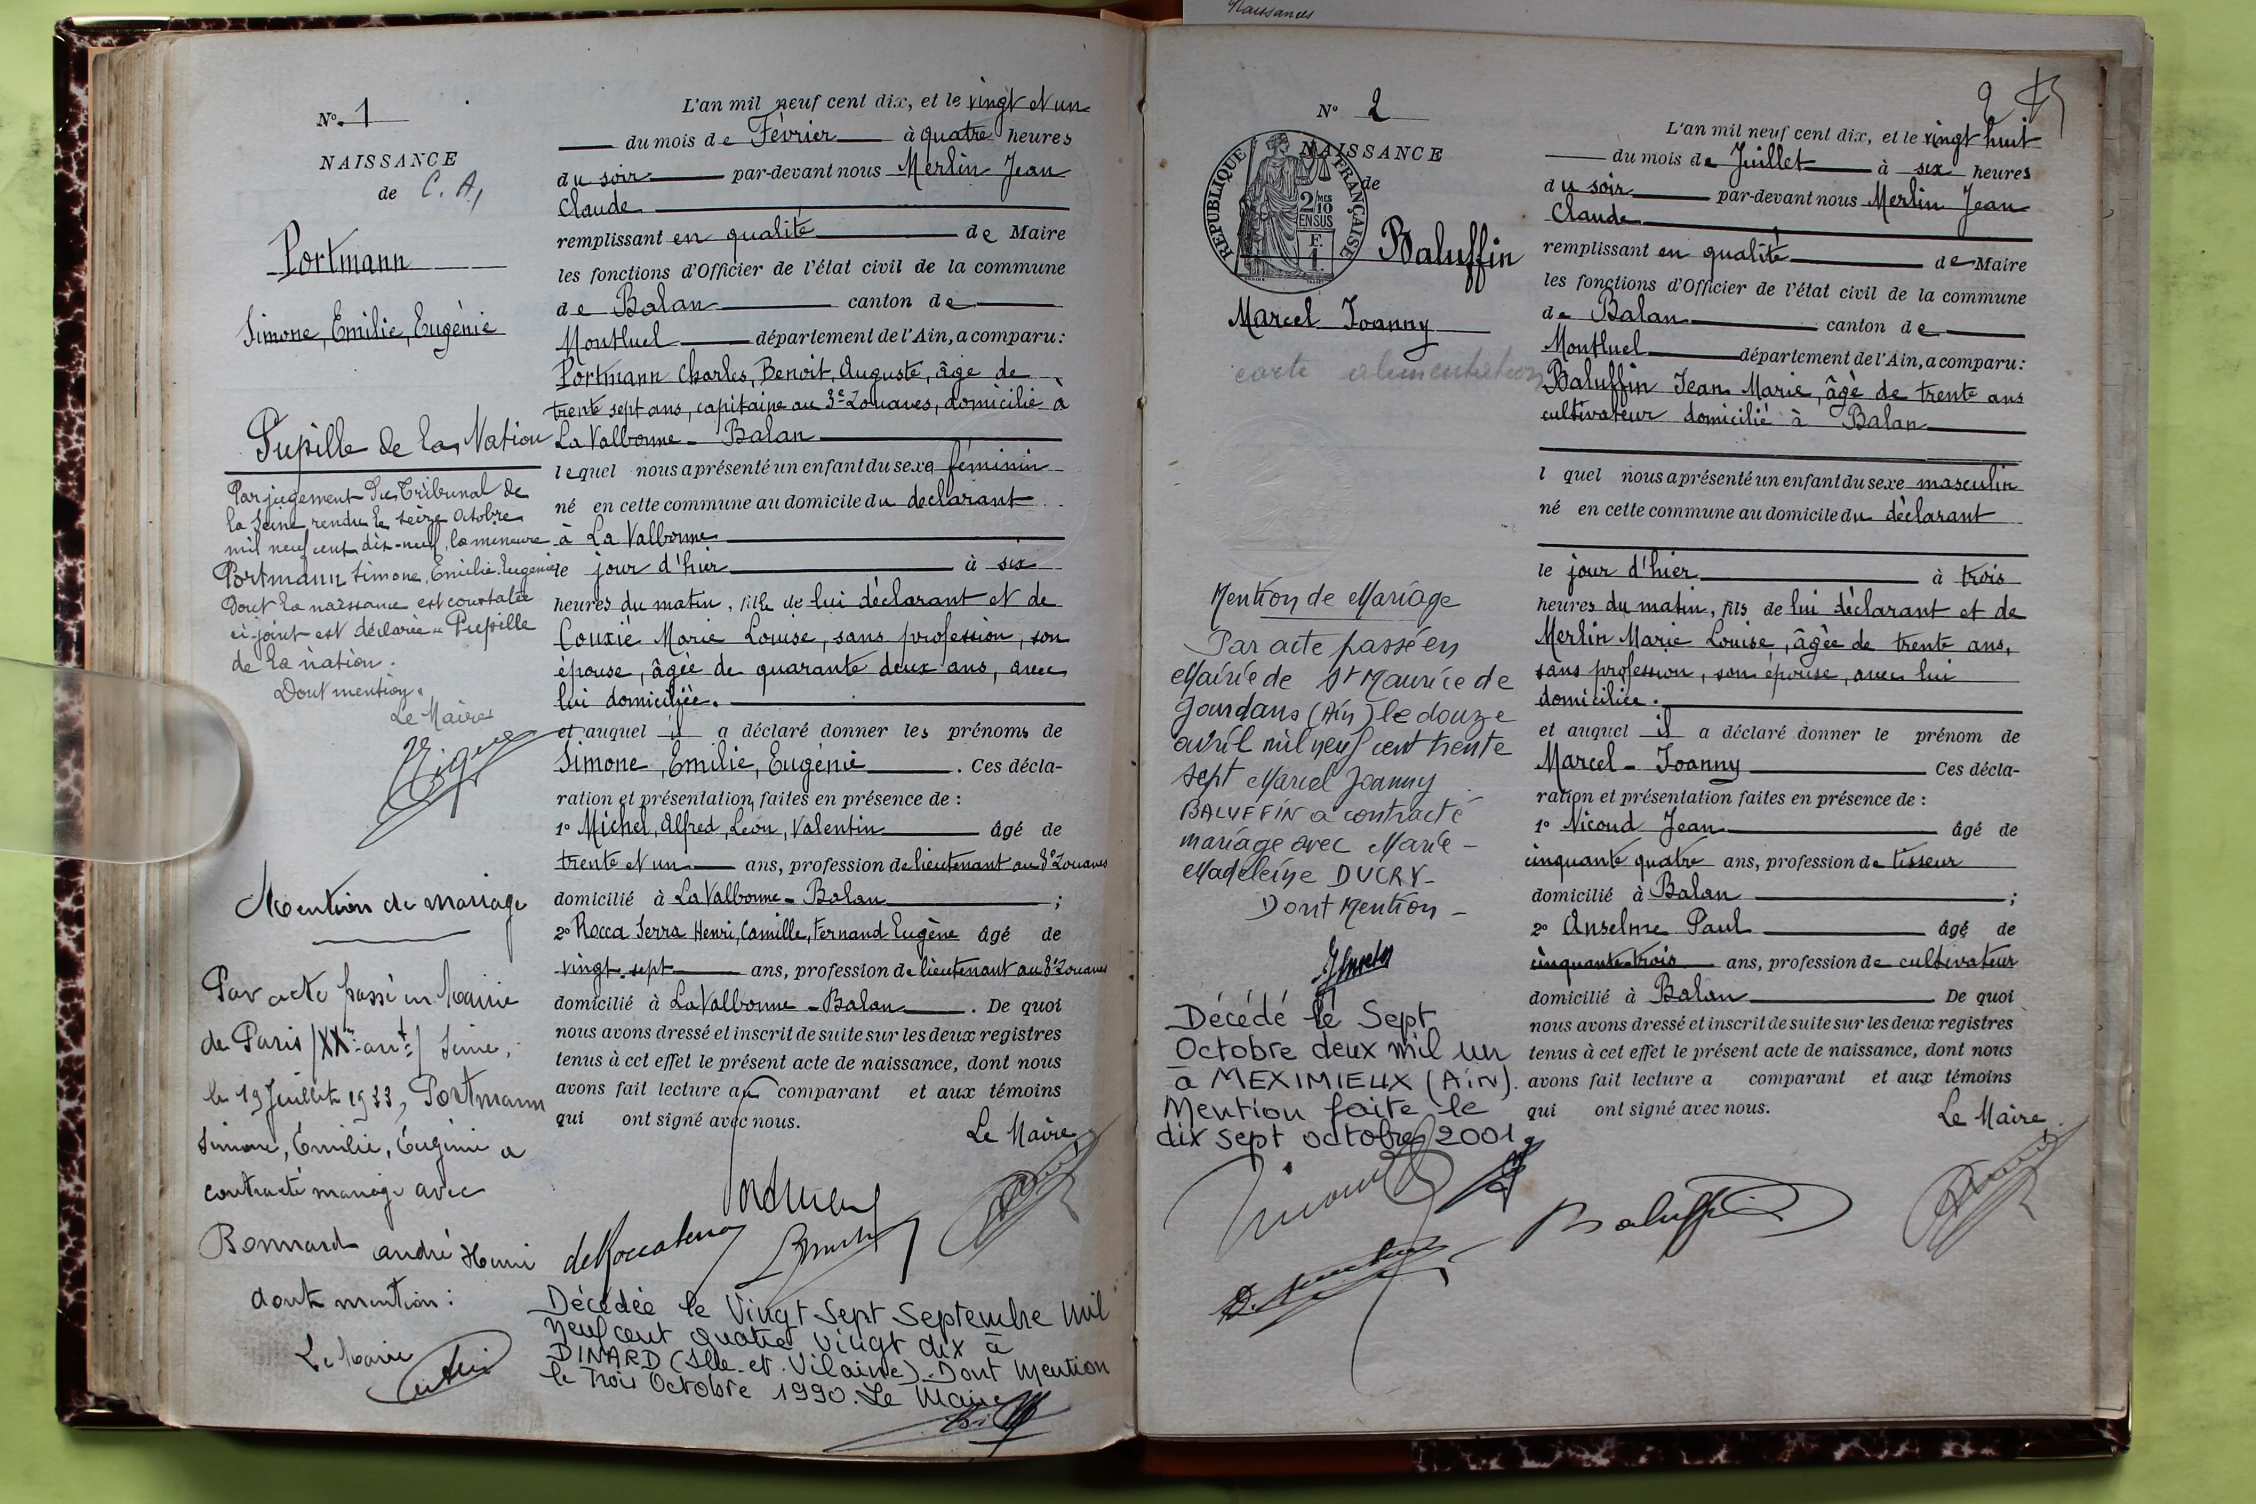 Naissances
N° 1
NAISSANCE
de C. A,
Portmann
Simone, Emilie, Eugénie
Pupille de la Nation
Par jugement du Tribunal de
la Seine rendu le seize Octobre
mil neuf cent dix-neuf, la mineure
Portmann Simone, Emilie, Eugénie
Dont la naissance est constatée
ci-joint est déclarée "Pupille
de la nation.
Dont mention.
Le Maire
Mention de mariage
Par acte passé en Mairie
de Paris (XXme arrt) Seine,
le 19 Juillet 1933, Portmann
Simone, Emilie, Eugénie a
contracté mariage avec
Bonnard André Henri
dont mention :
Le Maire
L'an mil neuf cent dix, et le vingt et un
du mois de Février à quatre heures
du soir par-devant nous Merlin Jean
Claude
remplissant en qualité de Maire
les fonctions d'Officier de l'état civil de la commune
de Balan canton de
Montluel département de l'Ain, a comparu :
Portmann Charles, Benoit, Auguste, âgé de
trente sept ans, capitaine au 3e Zouaves, domicilié à
La Valbonne - Balan
lequel nous a présenté un enfant du sexe féminin
né en cette commune au domicile du déclarant
à La Valbonne
le jour d'hier à six
heures du matin, fille de lui déclarant et de
Couxié Marie Louise, sans profession, son
épouse, âgée de quarante deux ans, avec
lui domiciliée.
et auquel il a déclaré donner les prénoms de
Simone, Emilie, Eugénie. Ces décla-
ration et présentation faites en présence de :
1° Michel, Alfred, Léon, Valentin âgé de
trente et un ans, profession de lieutenant au 3e Zouaves
domicilié à La Valbonne - Balan ;
2° Rocca Serra Henri, Camille, Fernand Eugène âgé de
vingt-sept ans, profession de lieutenant au 3e Zouaves
domicilié à La Valbonne - Balan. De quoi
nous avons dressé et inscrit de suite sur les deux registres
tenus à cet effet le présent acte de naissance, dont nous
avons fait lecture au comparant et aux témoins
qui ont signé avec nous.
Le Maire
Portmann
de Roccaserra
Décédée le Vingt Sept Septembre mil
neuf cent quatre vingt dix à
DINARD (Ille-et-Vilaine). Dont Mention
le Trois Octobre 1990. Le Maire
2
N° 2
NAISSANCE
de
RÉPUBLIQUE FRANÇAISE
2/10 MES
EN SUS
F.
1.
Baluffin
Marcel Joanny
carte alimentation
Mention de Mariage
Par acte passé en
Mairie de St Maurice de
Gourdans (Ain) le douze
avril mil neuf cent trente
sept Marcel Joanny
BALUFFIN a contracté
mariage avec Marie-
Madeleine DUCRY-
Dont Mention -
Décédé le Sept
Octobre deux mil un
à MEXIMIEUX (Ain).
Mention faite le
dix sept octobre 2001
L'an mil neuf cent dix, et le vingt huit
du mois de Juillet à six heures
du soir par-devant nous Merlin Jean
Claude
remplissant en qualité de Maire
les fonctions d'Officier de l'état civil de la commune
de Balan canton de
Montluel département de l'Ain, a comparu :
Baluffin Jean Marie, âgé de trente ans
cultivateur domicilié à Balan
l quel nous a présenté un enfant du sexe masculin
né en cette commune au domicile du déclarant
le jour d'hier à trois
heures du matin, fils de lui déclarant et de
Merlin Marie Louise, âgée de trente ans,
sans profession, son épouse, avec lui
domiciliée.
et auquel il a déclaré donner le prénom de
Marcel - Joanny Ces décla-
ration et présentation faites en présence de :
1° Nicoud Jean âgé de
cinquante quatre ans, profession de tisseur
domicilié à Balan ;
2° Anselme Paul âgé de
cinquante-trois ans, profession de cultivateur
domicilié à Balan De quoi
nous avons dressé et inscrit de suite sur les deux registres
tenus à cet effet le présent acte de naissance, dont nous
avons fait lecture a comparant et aux témoins
qui ont signé avec nous.
Le Maire,
Baluffin